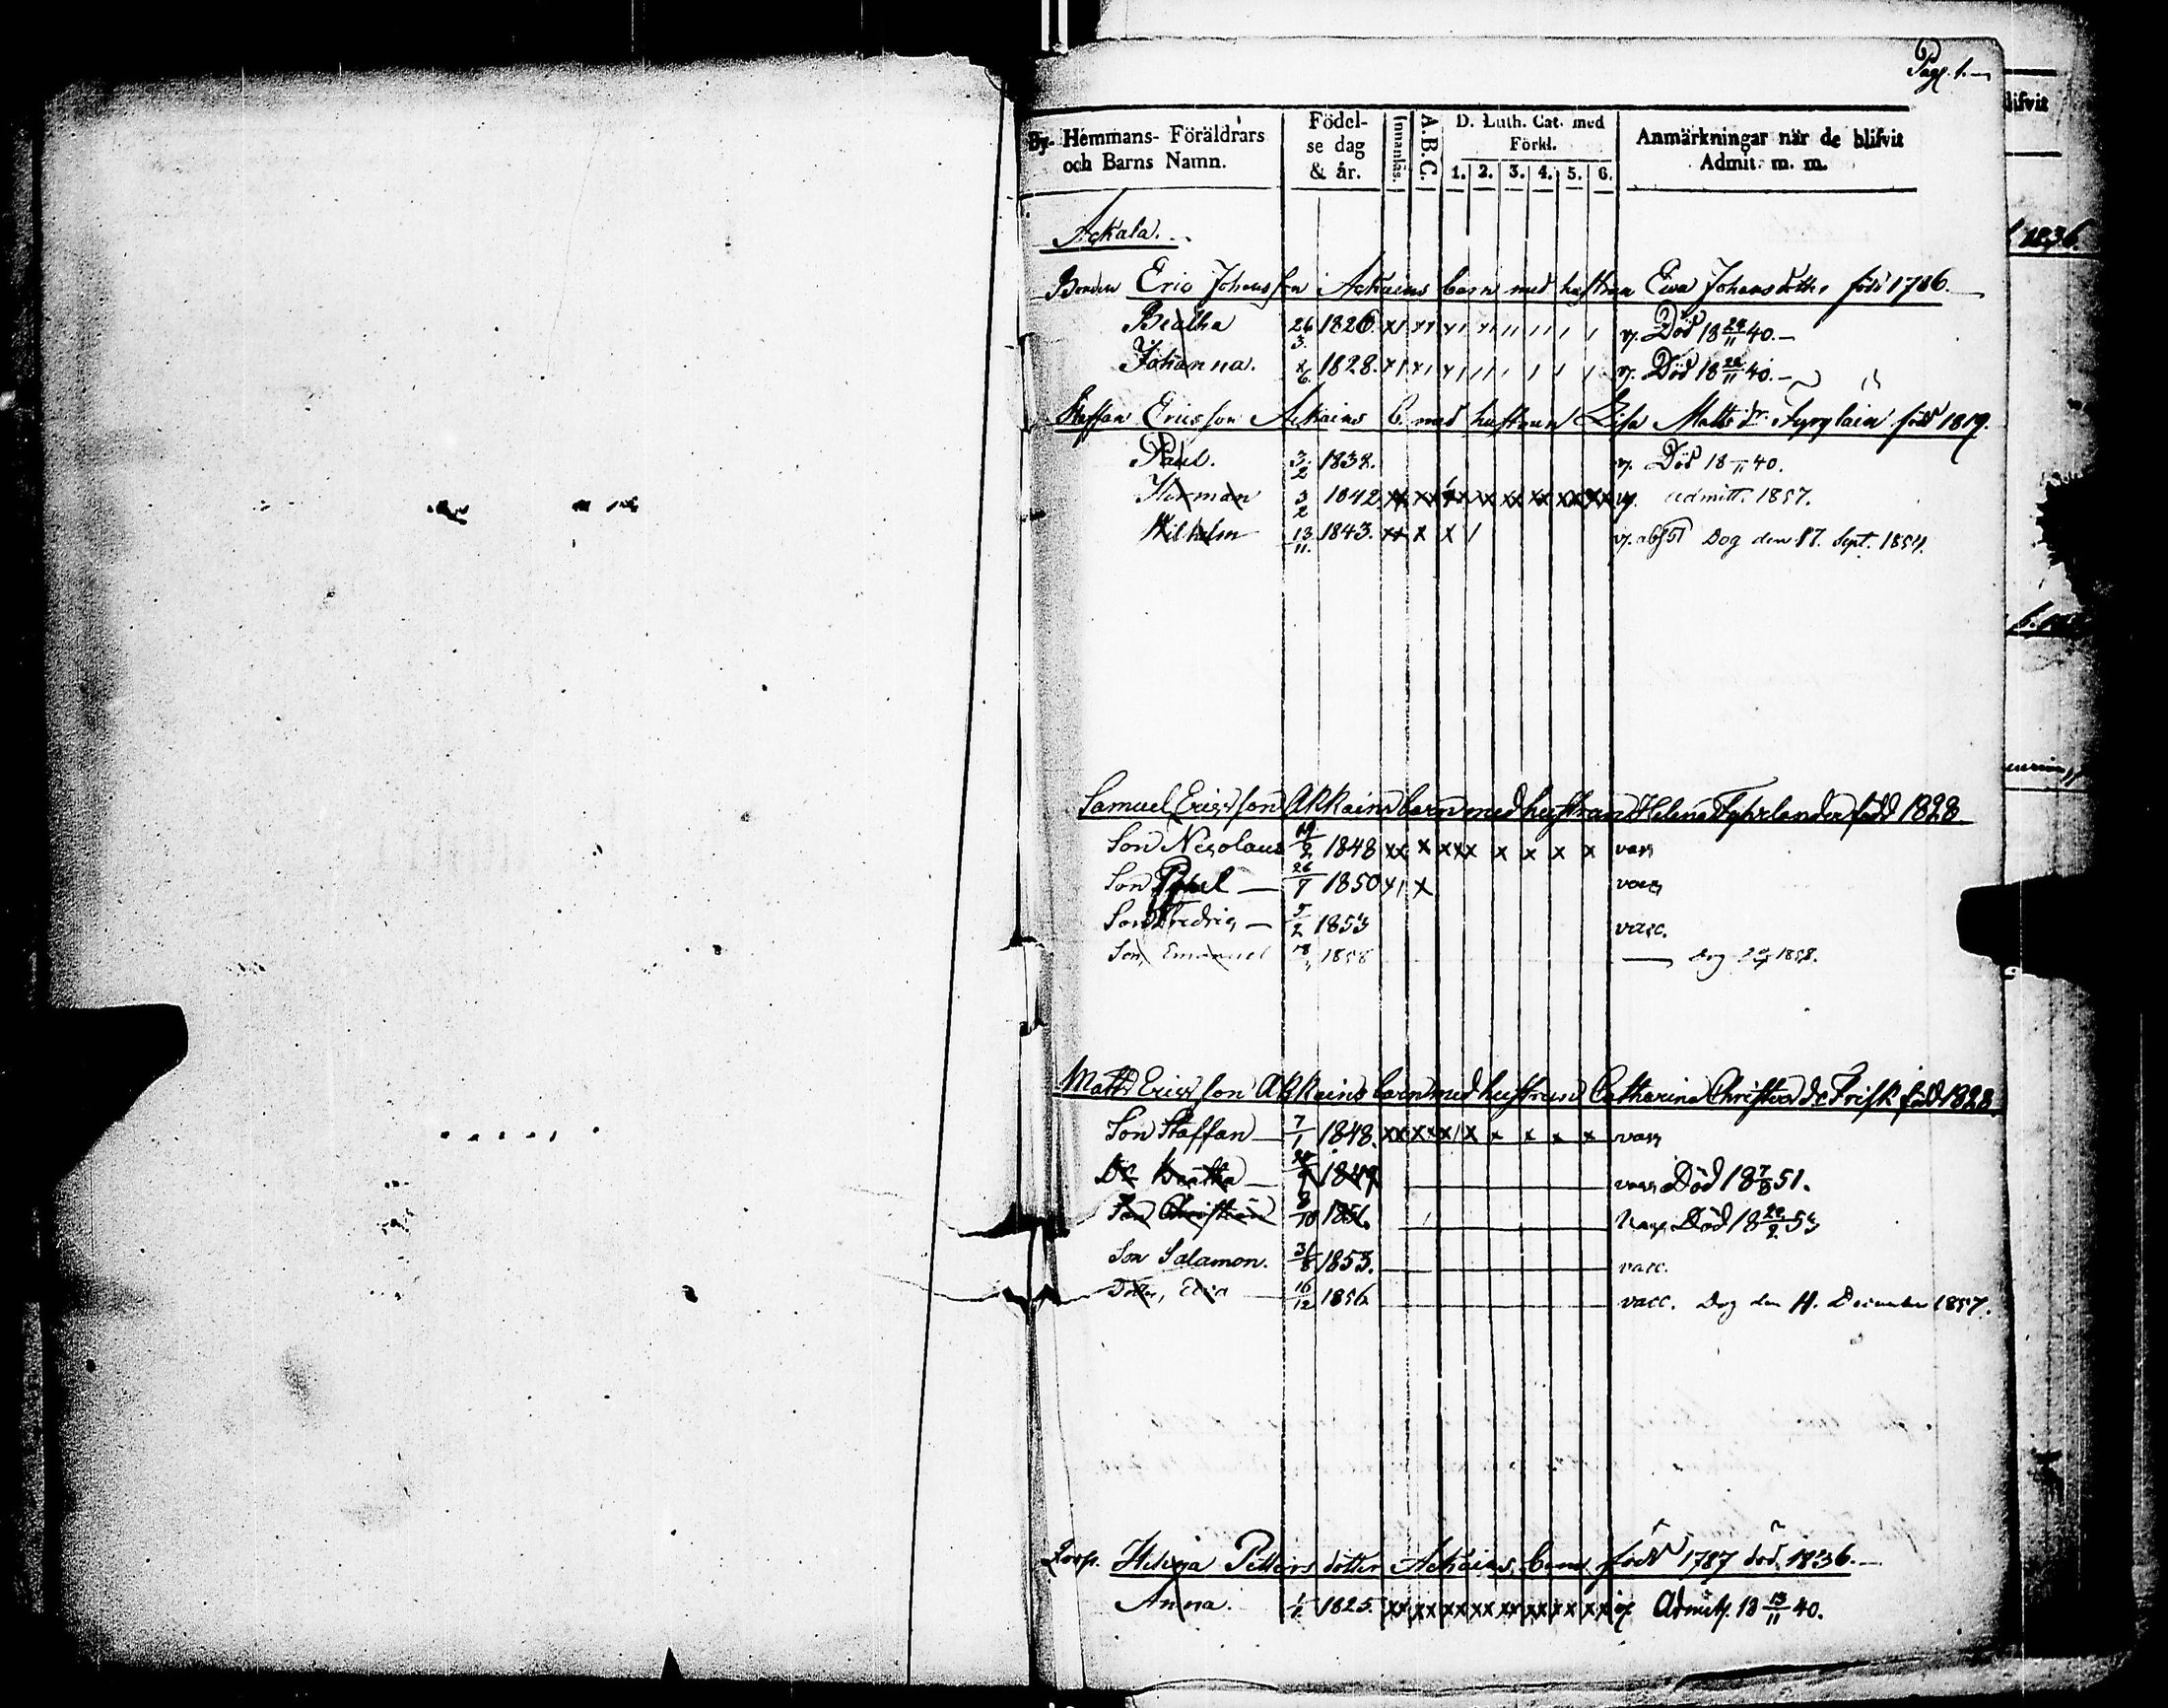 Pag. 1.
By- Hemmans- Föräldrars och Barns Namn.
Födelse dag & år.
Innanläs.
A.B.C.
D. Luth. Cat. med Förkl.
1. 2. 3. 4. 5. 6.
Anmärkningar när de blifvit Admit. m. m.
Ackala.
Bonden Eric Johansson Ackains barn med hustrun Eva Johansdotter född 1786.
Beatha 26/3 1826 v. Död 18 /11 40.
Johanna. 1828. v. Död 18 /11 40.
Staffan Ericsson Ackains b. med hustrun Lisa Matts dr. född 1819.
Paul. 3/2 1838. v. Död 18 /11 40.
Herman 3/2 1842 v. admitt. 1857.
Wilhelm 13/11. 1843. xx x x / v. Dog den 17. Sept. 1854.
Samuel Ericsson Akkains barn med hustrun Helena Fyhrlander född 1828
Son Nicolaus 1848 xx x xxx x x x x vacc
Son 26/7 1850 x/ x vacc
Son Fredric 5/2 1853 vacc.
Son, Emanuel 1858 Dog 1858.
Matts Ericsson Akkains barn med hustrun Catharina Christers dr Frisk född 1828
Son Staffan 7/1 1848. vacc
Dr Beatha 1849 vacc Död 18 51.
Son Christian 8/10 1851. vacc Död 18 /2 53
Son Salamon. 31/8 1853. vacc.
Dotter, Eva 16/12 1856 vacc. Dog den 11. December 1857.
Helena Petters dotter Ackains barn född 1787 död. 1836.
Anna. 1825. Admitt. 18 13/11 40.
lifvit
1836.